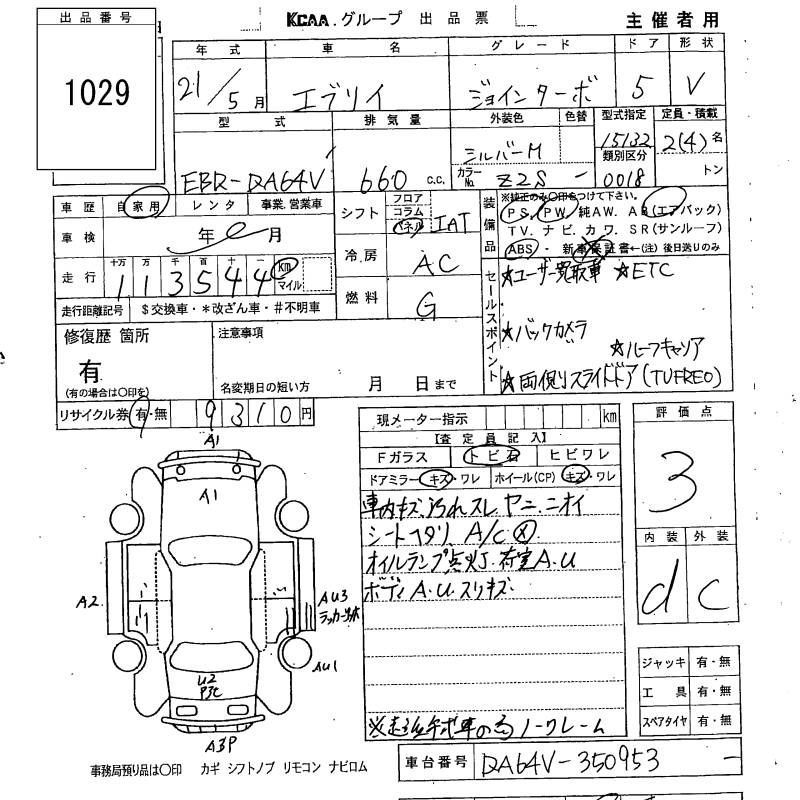 出品番号
1029
KCAA.グループ 出品票
主催者用
年式 車名 グレード ドア 形状
21/5月 エブリイ ジョインターボ 5 V
型式 排気量 外装色 色替 型式指定 定員・積載
EBD-DA64V 660 c.c. シルバーM 15132 2(4)名
カラーNo. Z2S - 類別区分 0018 トン
車歴 自家用 レンタ 事業.営業車
車検 年 0 月
走行 十万 万 千 百 十 一
113544 km マイル
走行距離記号 $交換車・*改ざん車・#不明車
シフト フロア コラム パネル IAT
冷房 AC
燃料 G
装備品 ※純正のみ〇印をつけて下さい。
PS, PW, 純AW. A.B(エアバック)
TV. ナビ. カワ. SR(サンルーフ)
ABS・新車保証書←(注)後日送りのみ
セールスポイント
★ユーザー買取車 ★ETC
★バックカメラ
★ルーフキャリア
★両側スライドドア(TUFREO)
修復歴 箇所
有
(有の場合は〇印を)
注意事項
名変期日の短い方 月 日まで
リサイクル券 有・無 9310円
現メーター指示 km
【査定員記入】
Fガラス トビ石 ヒビワレ
ドアミラー キズ・ワレ ホイール(CP) キズ・ワレ
車内キズ.汚れスレ ヤニ.ニオイ
シートヘタリ. A/C ⊗
オイルランプ点灯.荷室A.U
ボディ A.U.スリキズ
ノークレーム
評価点
3
内装 外装
d C
ジャッキ 有・無
工具 有・無
スペアタイヤ 有・無
A1
A1
A2
AU3
AU1
U2
P3C
A3P
事務局預り品は〇印 カギ シフトノブ リモコン ナビロム
車台番号 DA64V-350953 -